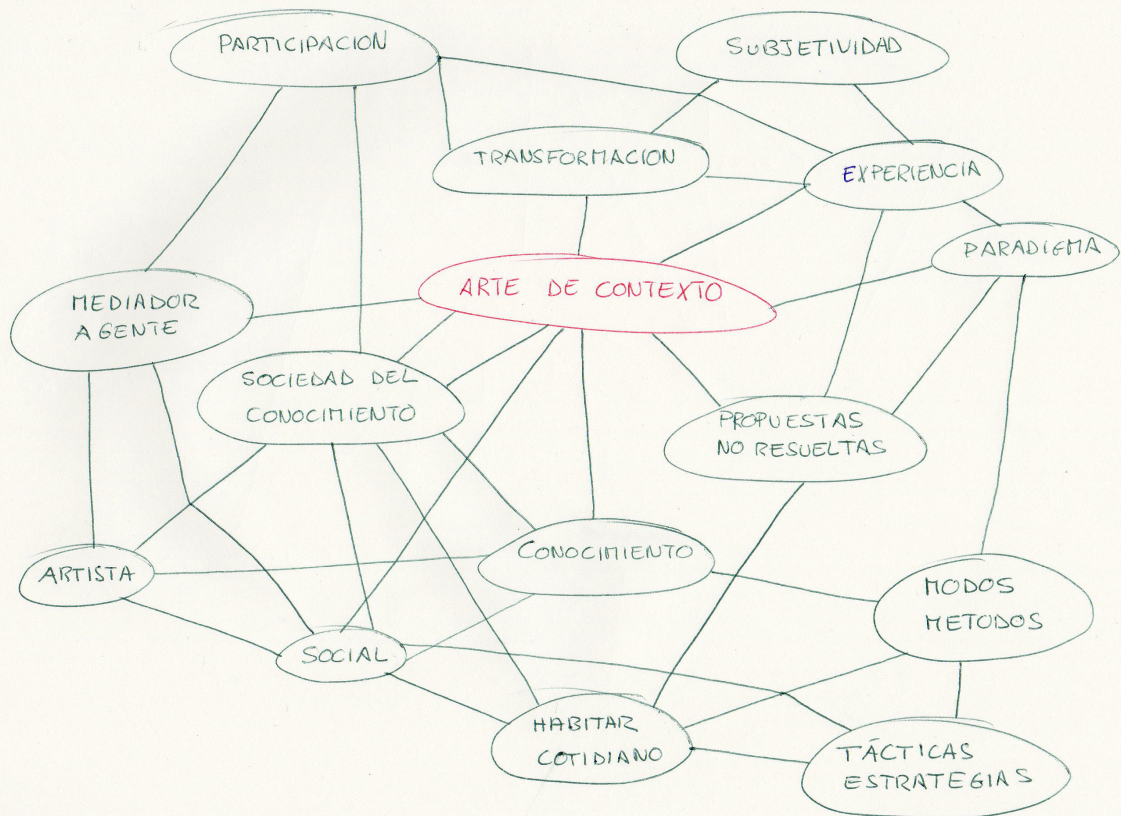 PARTICIPACION
SUBJETIVIDAD
TRANSFORMACION
EXPERIENCIA
PARADIGMA
ARTE DE CONTEXTO
MEDIADOR
AGENTE
SOCIEDAD DEL
CONOCIMIENTO
PROPUESTAS
NO RESUELTAS
CONOCIMIENTO
ARTISTA
MODOS
METODOS
SOCIAL
HABITAR
COTIDIANO
TÁCTICAS
ESTRATEGIAS